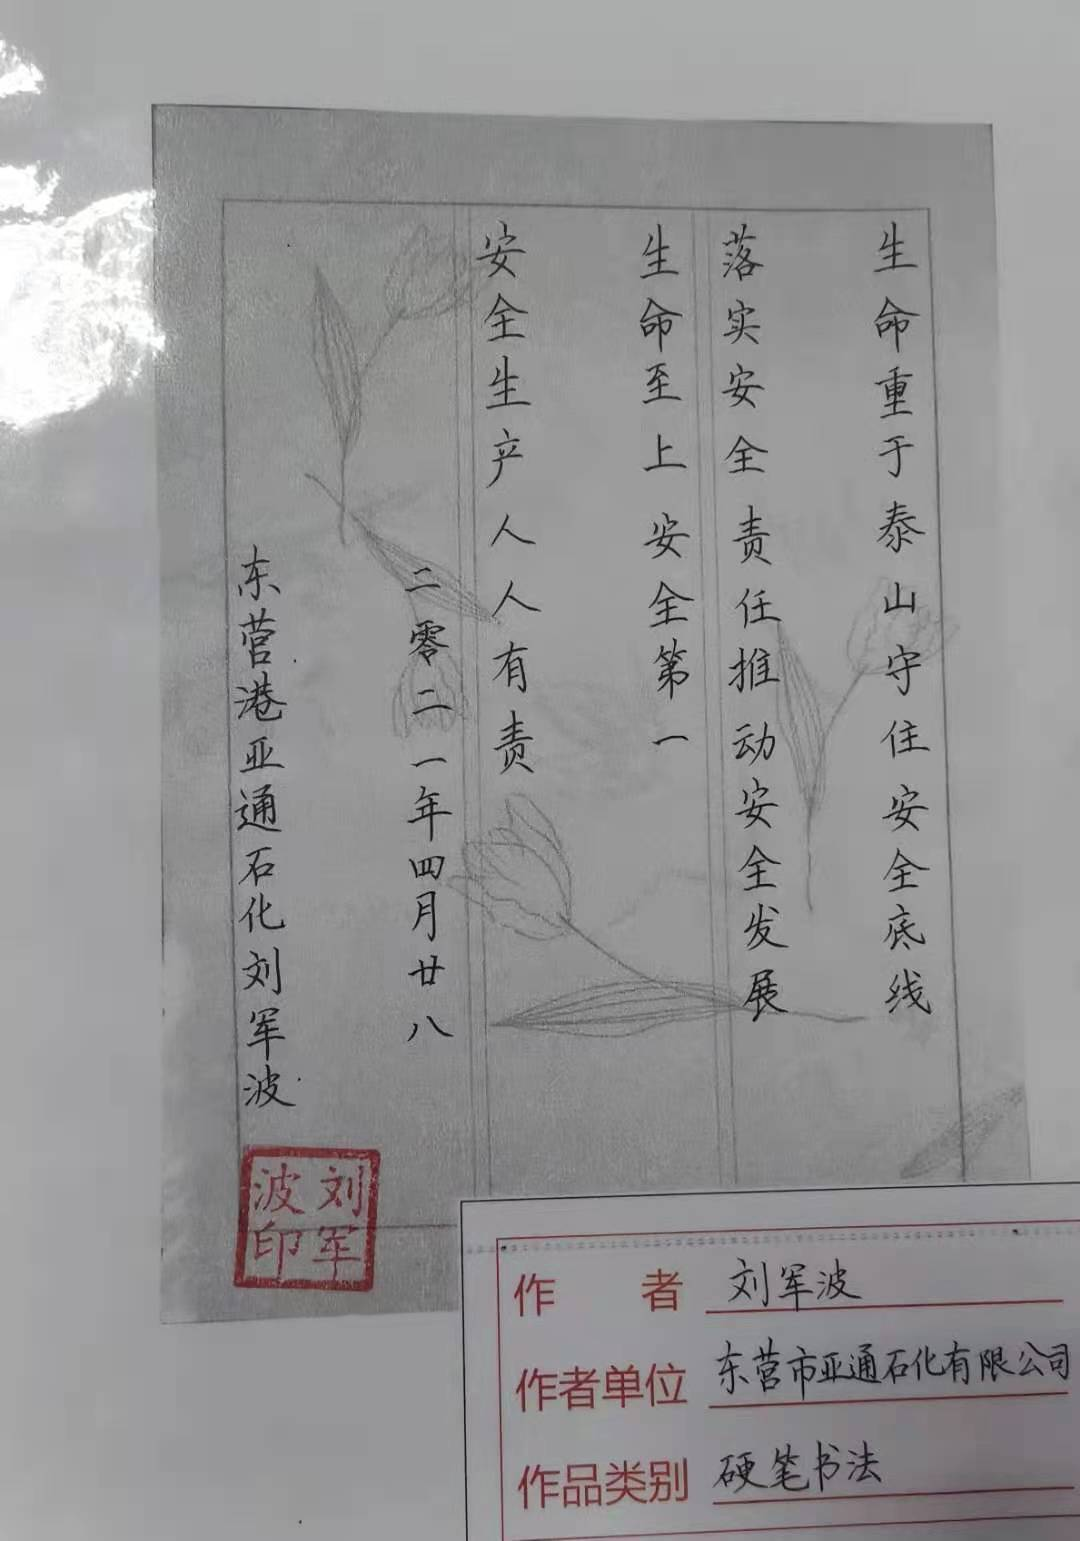 生命重于泰山守住安全底线
落实安全责任推动安全发展
生命至上安全第一
安全生产人人有责
二零二一年四月廿八
东营港亚通石化刘军波
刘军波印
作者 刘军波
作者单位 东营市亚通石化有限公司
作品类别 硬笔书法